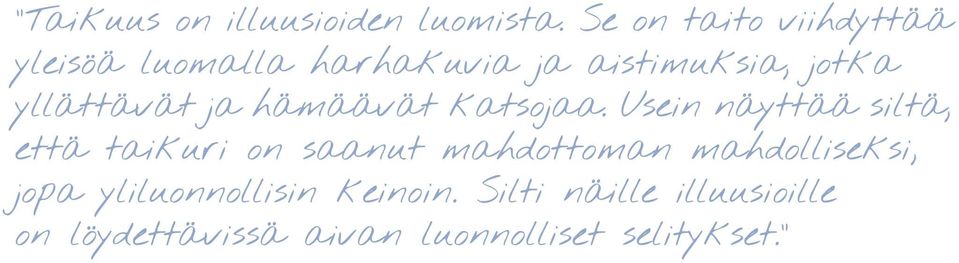 "Taikuus on illuusioiden luomista. Se on taito viihdyttää
yleisöä luomalla harhakuvia ja aistimuksia, jotka
yllättävät ja hämäävät katsojaa. Usein näyttää siltä,
että taikuri on saanut mahdottoman mahdolliseksi,
jopa yliluonnollisin keinoin. Silti näille illuusioille
on löydettävissä aivan luonnolliset selitykset."